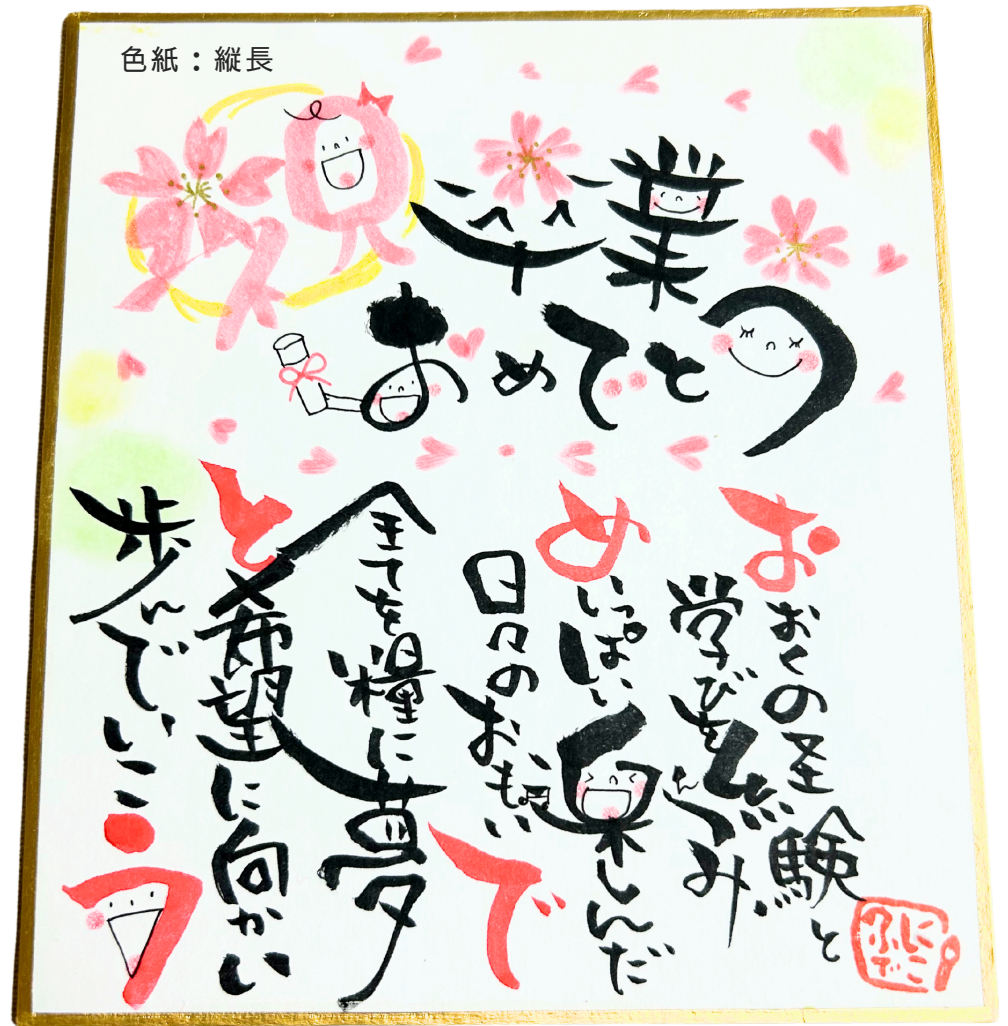 色紙：縦長
祝 卒業
おめでとう
おおくの経験と
学びをつみ
めいっぱい楽しんだ
日々のおもいで
全てを糧に夢
と希望に向かい
歩んでいこう
にこ
ふで